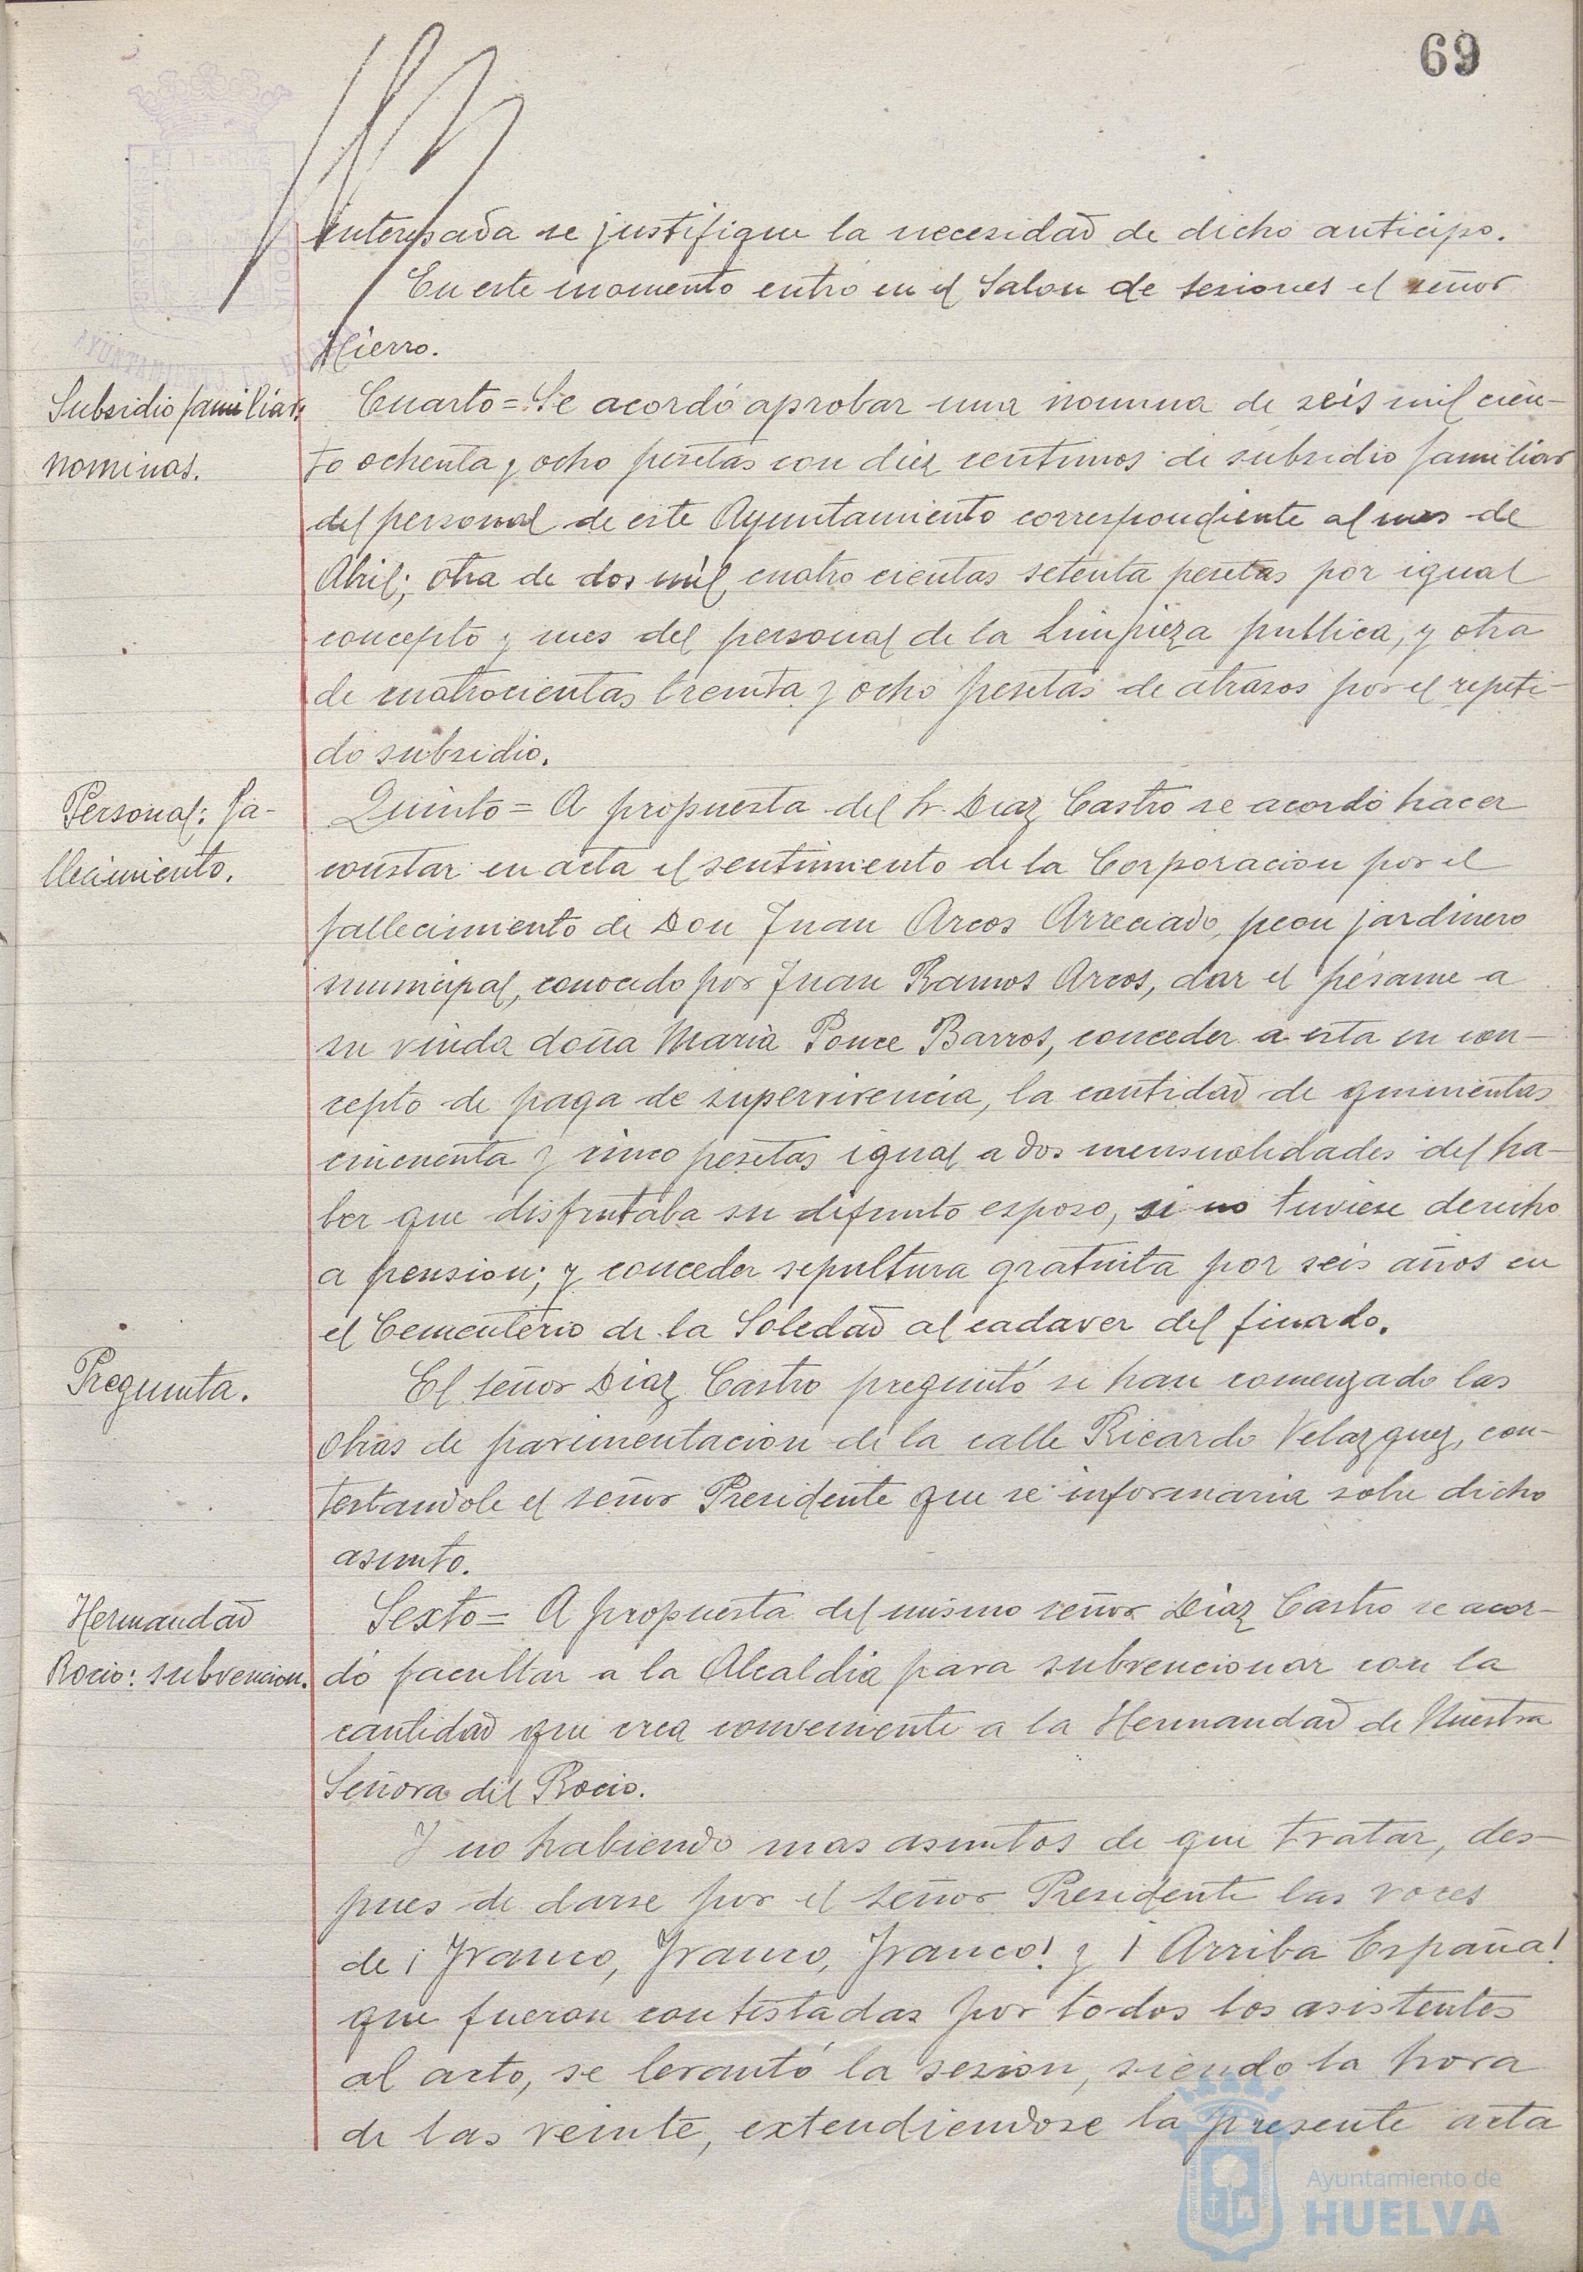 69
interesada se justifique la necesidad de dicho anticipo.
En este momento entró en el Salon de sesiones el señor
Hierro.
Subsidio familiar:
nominas.
Cuarto = Se acordó aprobar una nomina de seis mil cien-
to ochenta y ocho pesetas con diez centimos de subsidio familiar
del personal de este Ayuntamiento correspondiente al mes de
Abril; otra de dos mil cuatrocientas setenta pesetas por igual
concepto y mes del personal de la Limpieza publica, y otra
de cuatrocientas treinta y ocho pesetas de atrasos por el repeti-
do subsidio.
Personal: fa-
llecimiento.
Quinto = A propuesta del Sr. Diaz Castro se acordó hacer
constar en acta el sentimiento de la Corporacion por el
fallecimiento de Don Juan Arcos Arreciado, peon jardinero
municipal, conocido por Juan Ramos Arcos, dar el pésame a
su viuda doña Maria Ponce Barros, conceder a esta en con-
cepto de paga de supervivencia, la cantidad de quinientas
cincuenta y cinco pesetas igual a dos mensualidades del ha-
ber que disfrutaba su difunto esposo, si no tuviese derecho
a pension; y conceder sepultura gratuita por seis años en
el Cementerio de la Soledad al cadaver del finado.
Pregunta.
El señor Diaz Castro preguntó si han comenzado las
obras de pavimentacion de la calle Ricardo Velazquez, con-
testandole el señor Presidente que se informaria sobre dicho
asunto.
Hermandad
Rocio: subvencion.
Sexto = A propuesta del mismo señor Diaz Castro se acor-
dó facultar a la Alcaldia para subvencionar con la
cantidad que crea conveniente a la Hermandad de Nuestra
Señora del Rocio.
Y no habiendo mas asuntos de que tratar, des-
pues de darse por el señor Presidente las voces
de ¡Franco, Franco, Franco! y ¡Arriba España!
que fueron contestadas por todos los asistentes
al acto, se levantó la sesion, siendo la hora
de las veinte, extendiendose la presente acta
Ayuntamiento de
HUELVA